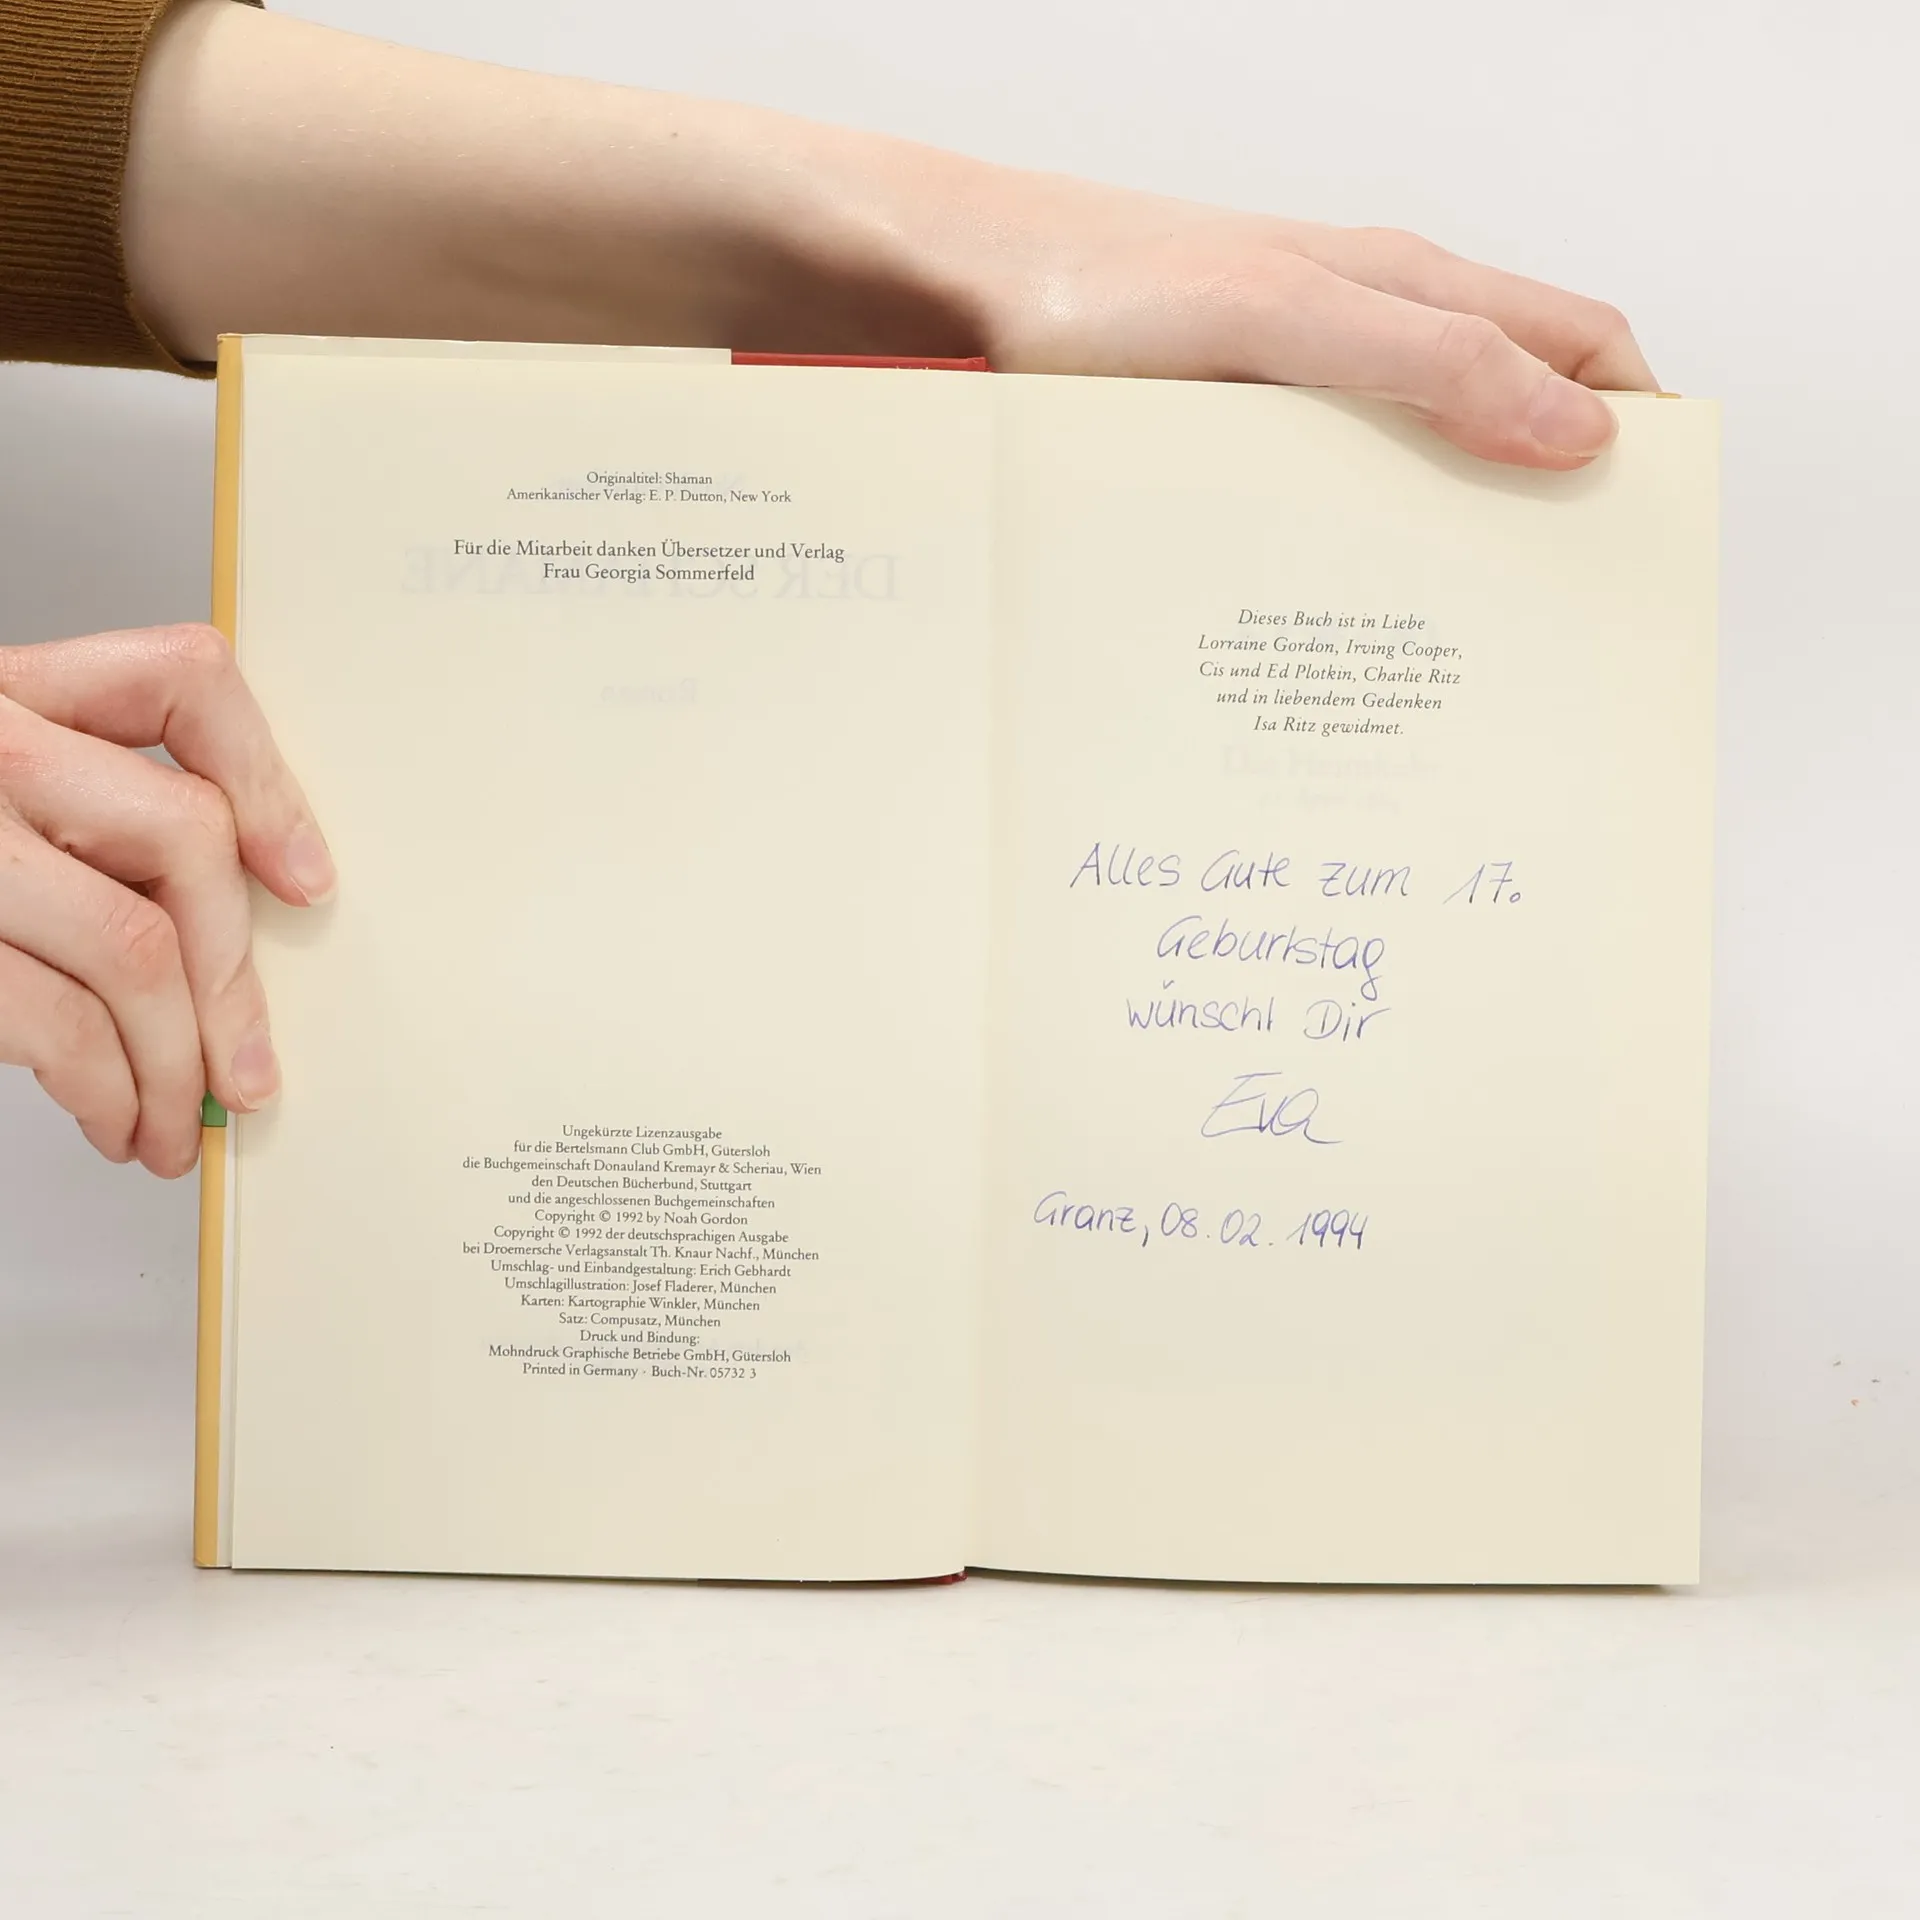 Originaltitel: Shaman
Amerikanischer Verlag: E. P. Dutton, New York
Für die Mitarbeit danken Übersetzer und Verlag
Frau Georgia Sommerfeld
Ungekürzte Lizenzausgabe
für die Bertelsmann Club GmbH, Gütersloh
die Buchgemeinschaft Donauland Kremayr & Scheriau, Wien
den Deutschen Bücherbund, Stuttgart
und die angeschlossenen Buchgemeinschaften
Copyright © 1992 by Noah Gordon
Copyright © 1992 der deutschsprachigen Ausgabe
bei Droemersche Verlagsanstalt Th. Knaur Nachf., München
Umschlag- und Einbandgestaltung: Erich Gebhardt
Umschlagillustration: Josef Fladerer, München
Karten: Kartographie Winkler, München
Satz: Compusatz, München
Druck und Bindung:
Mohndruck Graphische Betriebe GmbH, Gütersloh
Printed in Germany · Buch-Nr. 05732 3
Dieses Buch ist in Liebe
Lorraine Gordon, Irving Cooper,
Cis und Ed Plotkin, Charlie Ritz
und in liebendem Gedenken
Isa Ritz gewidmet.
Alles Gute zum 17.
Geburtstag
wünscht Dir
Eva
Granz, 08.02.1994